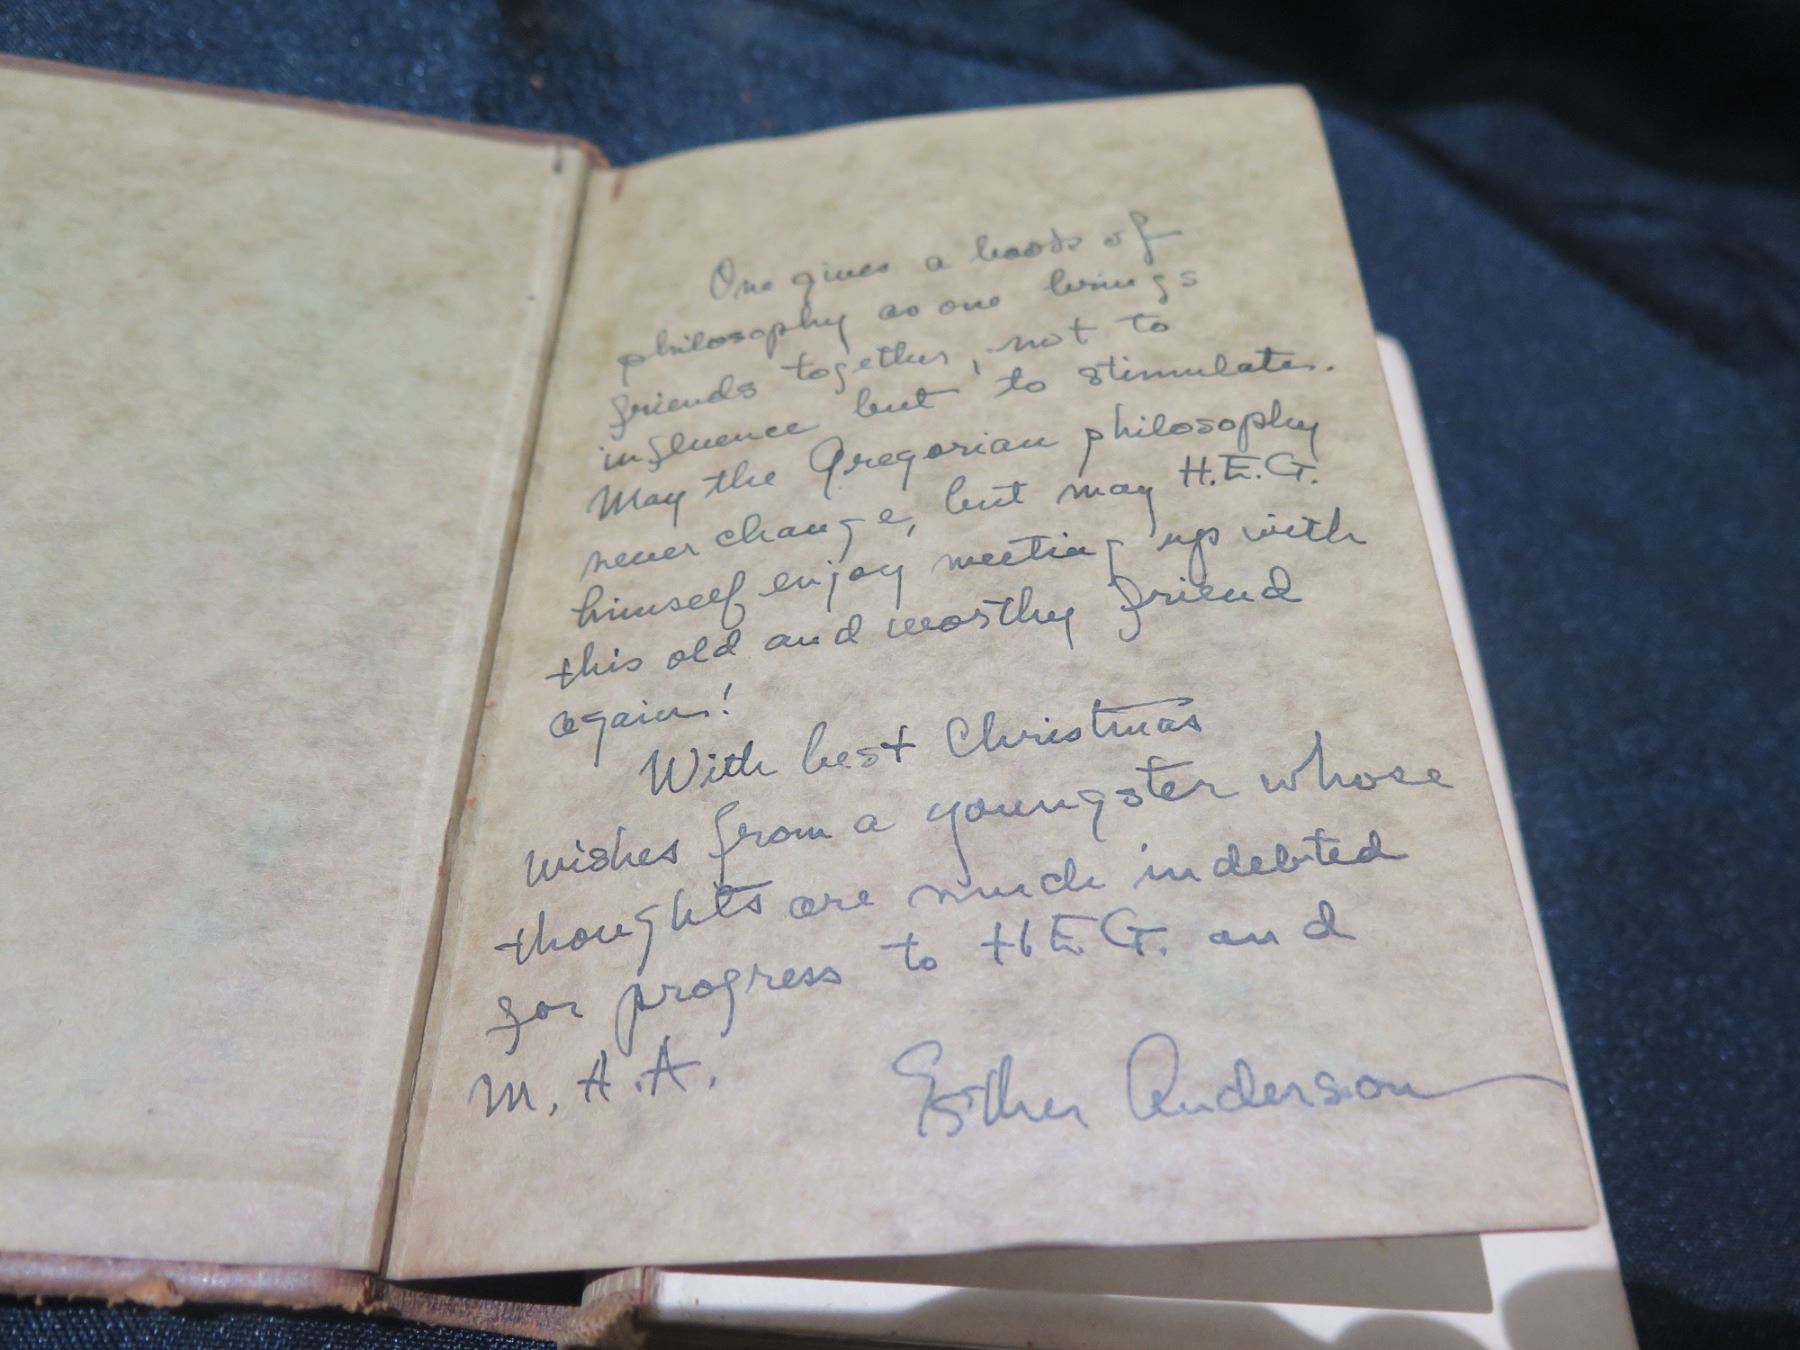 One gives a book of
philosophy as one brings
friends together, not to
influence but to stimulate.
May the Gregorian philosophy
never change, but may H.E.G.
himself enjoy meeting up with
this old and worthy friend
again!
With best Christmas
wishes from a youngster whose
thoughts are much indebted
for progress to H.E.G. and
M.A.A.
Esther Anderson